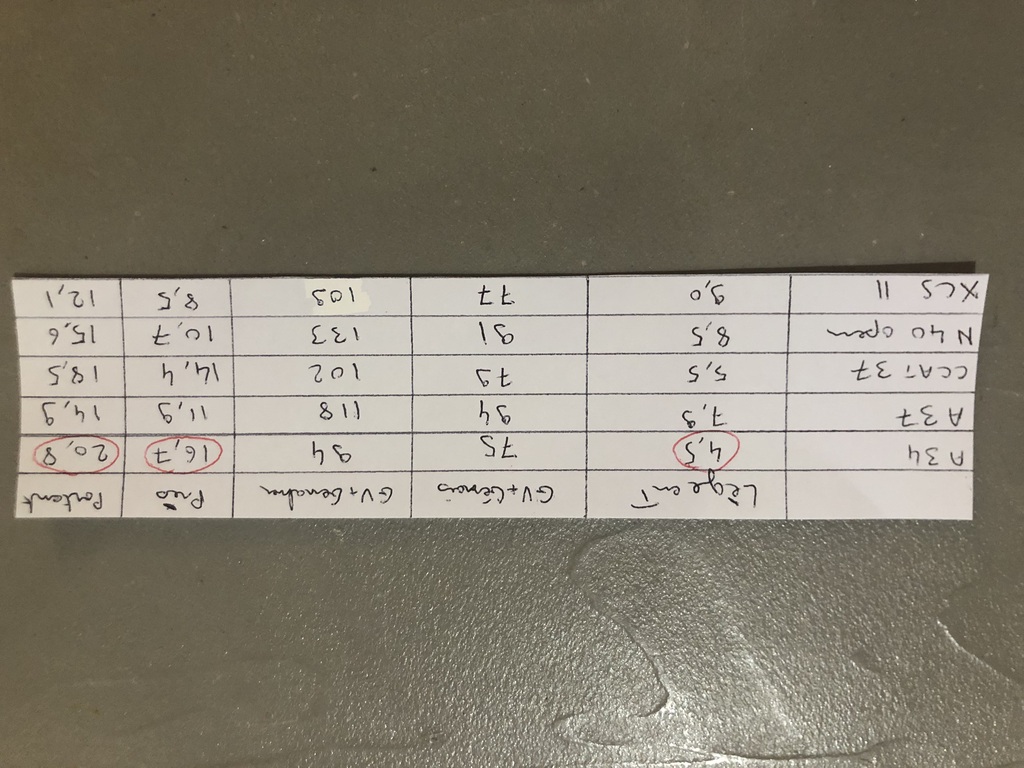 Lège en T GV + Génois GV + Genaker Près Portant
A 34 4,5 75 94 16,7 20,8
A 37 7,9 94 118 11,9 14,9
CCAT 37 5,5 79 102 14,4 18,5
N 40 open 8,5 91 133 10,7 15,6
XCS 11 9,0 77 109 8,5 12,1